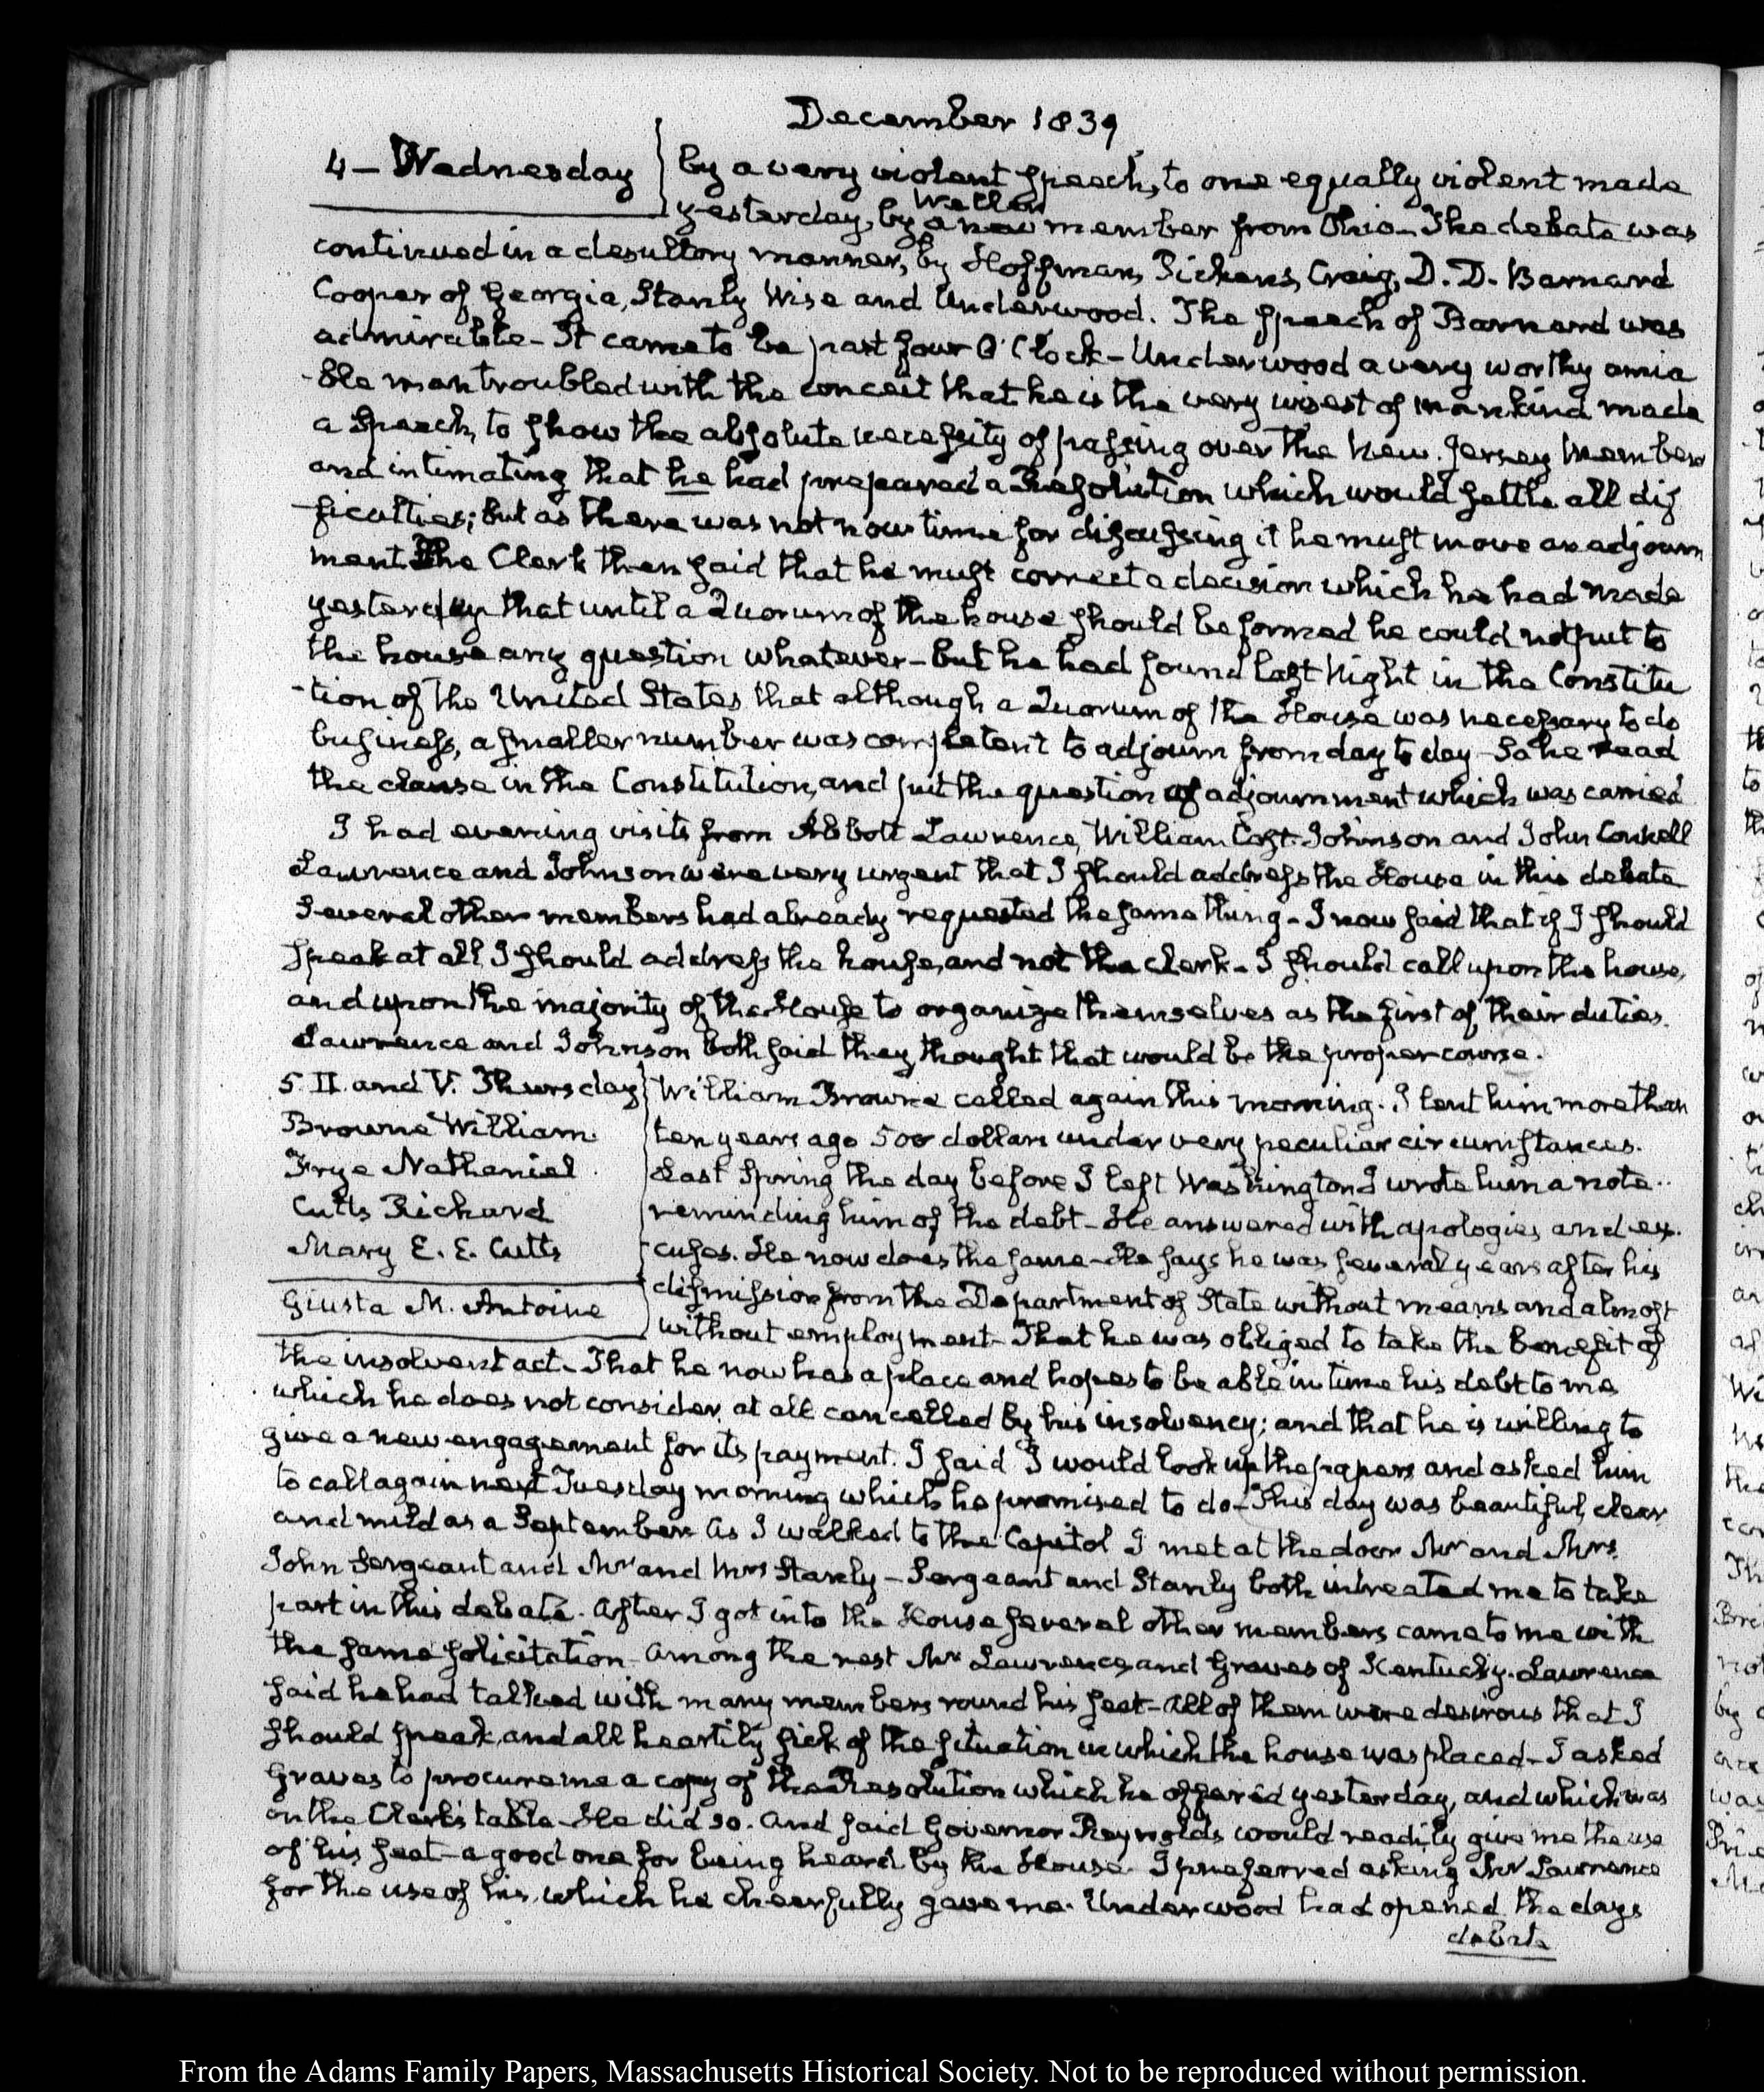 December 1839
4 – Wednesday
by a very violent speech, to one equally violent made
Weller
yesterday, by a new member from Ohio – The debate was
continued in a desultory manner, by Hoffman, Pickens, Craig, D. D. Barnard
Cooper of Georgia, Stanly Wise and Underwood. The speech of Barnard was
admirable – It came to be past four O'Clock – Underwood a very worthy amia
-ble man troubled with the conceit that he is the very wisest of mankind made
a Speech, to show the absolute necessity of passing over the New Jersey members
and intimating that he had prepared a Resolution which would settle all dif
-ficulties; but as there was not now time for discussing it he must move an adjourn
ment The Clerk then said that he must correct a decision which he had made
yesterday that until a Quorum of the house should be formed he could not put to
the house any question whatever – but he had found last Night in the Constitu
-tion of the United States that although a Quorum of the House was necessary to do
business, a smaller number was competent to adjourn from day to day – So he read
the clause in the Constitution, and put the question of adjournment which was carried
I had evening visits from Abbott Lawrence, William Cost Johnson and John
Lawrence and Johnson were very urgent that I should address the House in this debate
Several other members had already requested the same thing – I now said that if I should
speak at all I should address the house, and not the clerk – I should call upon the house,
and upon the majority of the House to organize themselves as the first of their duties.
Lawrence and Johnson both said they thought that would be the proper course.
5. II. and V. Thursday
Browne William
Frye Nathaniel
Cutts Richard
Mary E. E. Cutts
Giusta M. Antoine
William Browne called again this morning. I lent him more than
ten years ago 500 dollars under very peculiar circumstances.
Last Spring the day before I left Washington I wrote him a note
reminding him of the debt – He answered with apologies and ex-
cuses. He now does the same – He says he was several years after his
dismission from the Department of State without means and almost
without employment – That he was obliged to take the benefit of
the insolvent act – That he now has a place and hopes to be able in time his debt to me
which he does not consider at all cancelled by his insolvency; and that he is willing to
give a new engagement for its payment. I said I would look up the papers and asked him
to call again next Tuesday morning which he promised to do – This day was beautiful, clear
and mild as a September. As I walked to the Capitol I met at the door Mr and Mrs
John Sergeant and Mr and Mrs Stanly – Sergeant and Stanly both intreated me to take
part in this debate. After I got into the House several other members came to me with
the same solicitation – Among the rest Mr Lawrence, and Graves of Kentucky. Lawrence
said he had talked with many members round his seat – All of them were desirous that I
should speak, and all heartily sick of the situation in which the house was placed – I asked
Graves to procure me a copy of the Resolution which he offered yesterday, and which was
on the Clerk's table – He did so. And said Governor Reynolds would readily give me the use
of his seat – a good one for being heard by the House. I preferred asking Mr Lawrence
for the use of his, which he cheerfully gave me. Underwood had opened the days
debate
From the Adams Family Papers, Massachusetts Historical Society. Not to be reproduced without permission.